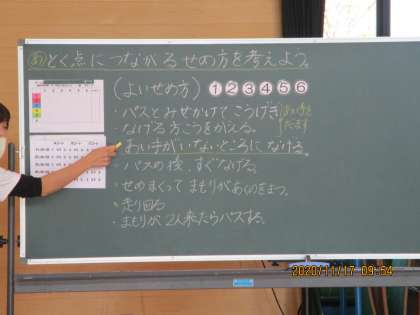 めとく点につながるせめ方を考えよう。
(よいせめ方) ①②③④⑤⑥
・パスとみせかけてこうげき
・なげる方こうをかえる。
あい手をだます
・あい手がいないところになげる。
・パスの後、すぐなげる。
・せめまくってまもりがあくのをまつ。
・走り回る
・まもりが2人来たらパスする。
2020/11/17 09:54